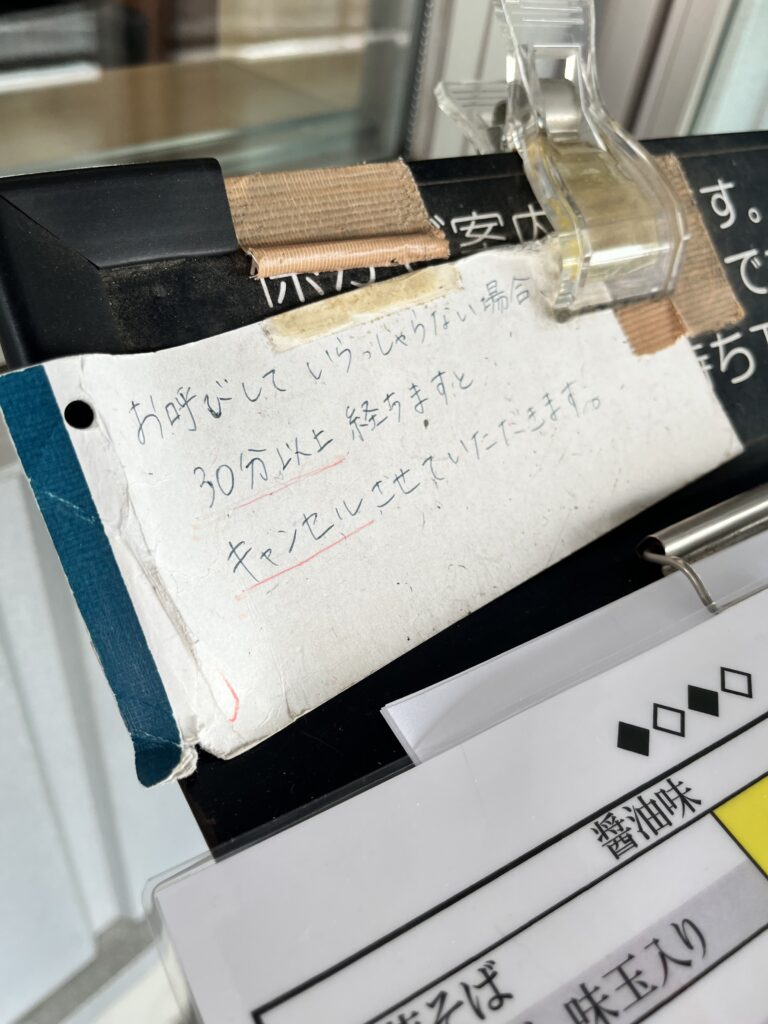 ご案内 す。
で
待ち
お呼びして いらっしゃらない場合
30分以上 経ちますと
キャンセルさせていただきます。
◆◇◆◇
醤油味
そば
味玉入り